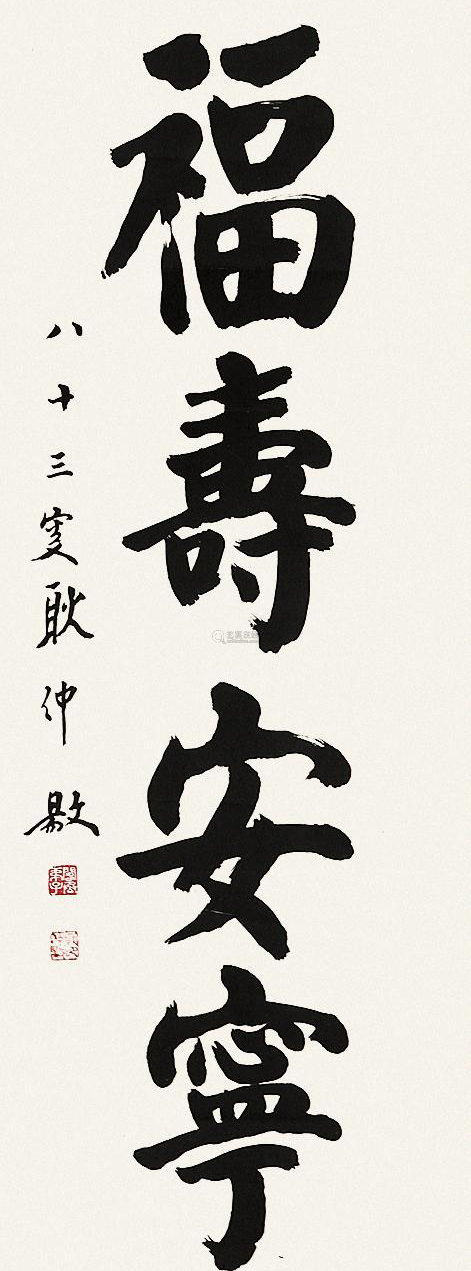 福壽安寧
八十三叟耿仲敭